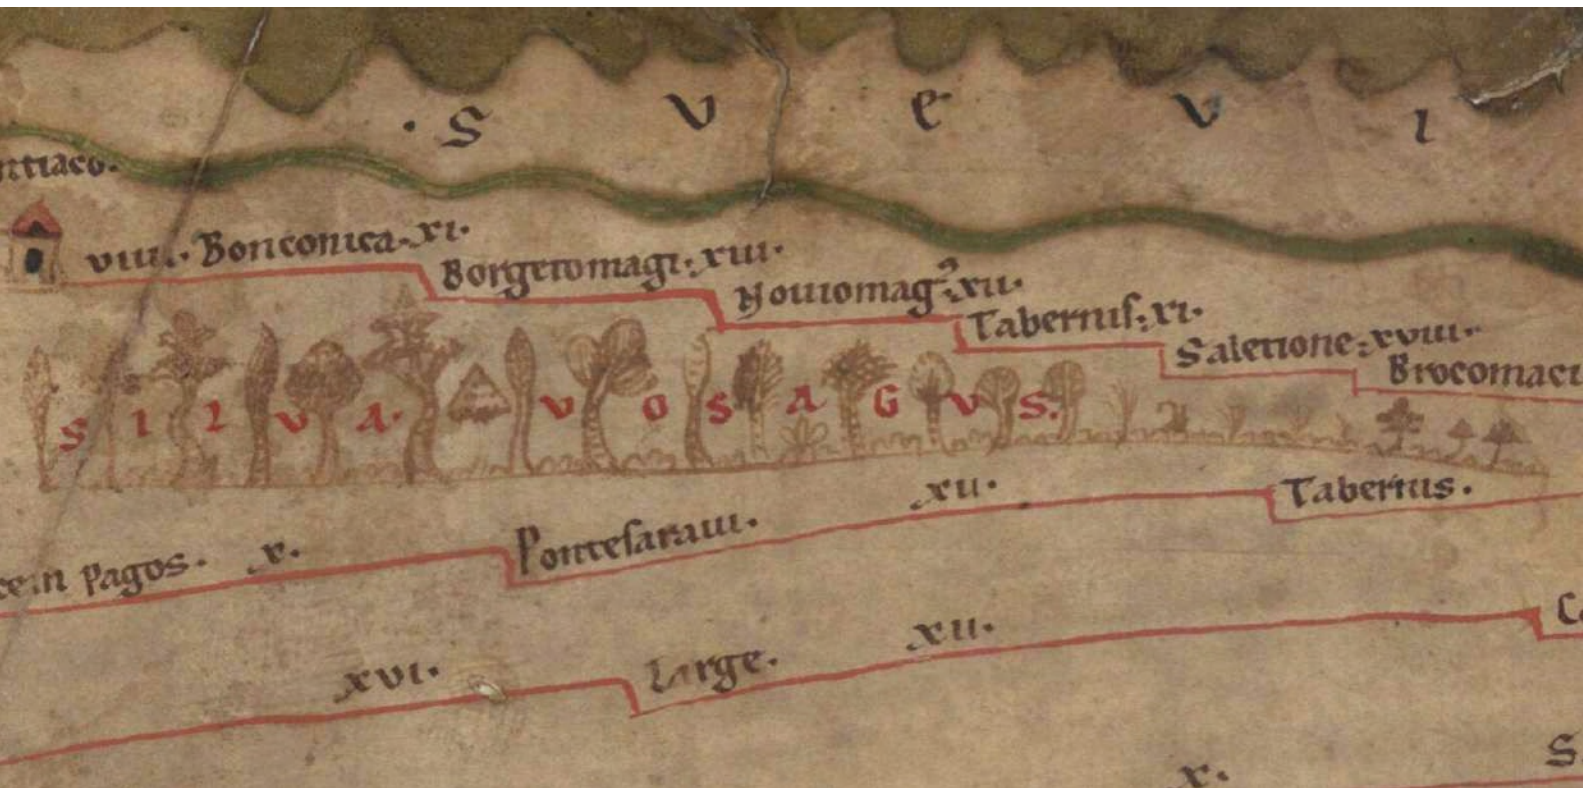 · S V e V I
ntiaco.
viiii. Bonconica. xi.
Borgetomagi. xiii.
Noviomag⁹. xii.
Tabernis. xi.
Saletione. xviii.
Brocomaci
SILVA. VOSAGVS.
xii.
Tabernis.
cem pagos. x.
Pontesaravi.
xii.
xvi.
Large.
x.
S